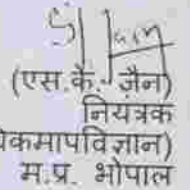 (एस.के. जैन)
नियंत्रक
मापविज्ञान)
म.प्र. भोपाल